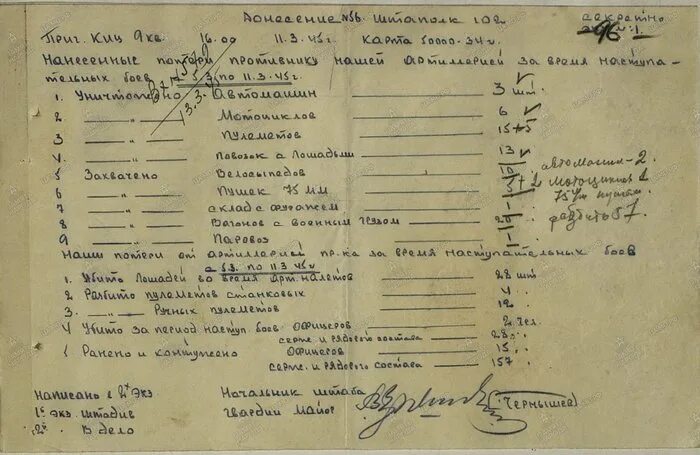 Донесение №56. Штаполк 102 секретно
Приг. Киц 9 кв. 16.00 11.3.45г. Карта 50000-34г. экз. №1.
96
Нанесенные потери противнику нашей артиллерией за время наступа-
тельных боев с 5.3 по 11.3.45г.
13.3.
1. Уничтожено Автомашин 3 шт.
2 —"— Мотоциклов 6
3 —"— Пулеметов 15+5
4. —"— повозок с лошадьми 13
5 Захвачено Велосипедов 10 автомашин-2.
6 —"— Пушек 75 мм +2 мотоциклов 1
7 —"— склад с фуражем 1 75 мм
8 —"— Вагонов с военным грузом 29 57.
9 —"— Паровоз 1
Наши потери от артиллерией пр-ка за время наступательных боев
с 5.3. по 11.3.45г.
1. Убито лошадей во время арт.налетов 28 шт
2 Разбито пулеметов станковых 4
3. —"— Ручных пулеметов 12
4 Убито за период наступ. боев офицеров 2 чел.
серж. и рядового состава 28
5 Ранено и контужено офицеров 15
серж. и рядового состава 157
Написано в 2х экз Начальник штаба
1й экз. штадив гвардии майор (Чернышев)
2й В дело